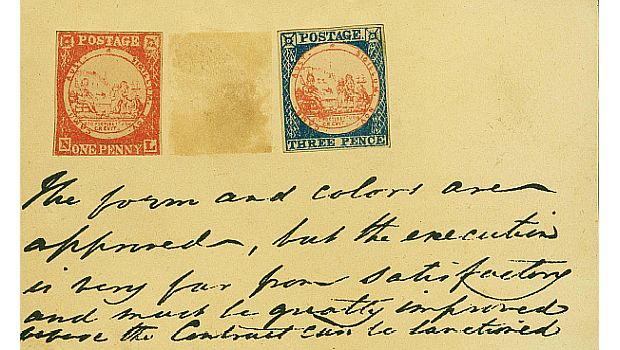 POSTAGE
SIGILLUM
CREVIT
N ONE PENNY L
POSTAGE.
SIGILLUM
CREVIT
THREE PENCE
The form and colors are
approved, but the execution
is very far from satisfactory
and must be greatly improved
before the Contract can be sanctioned